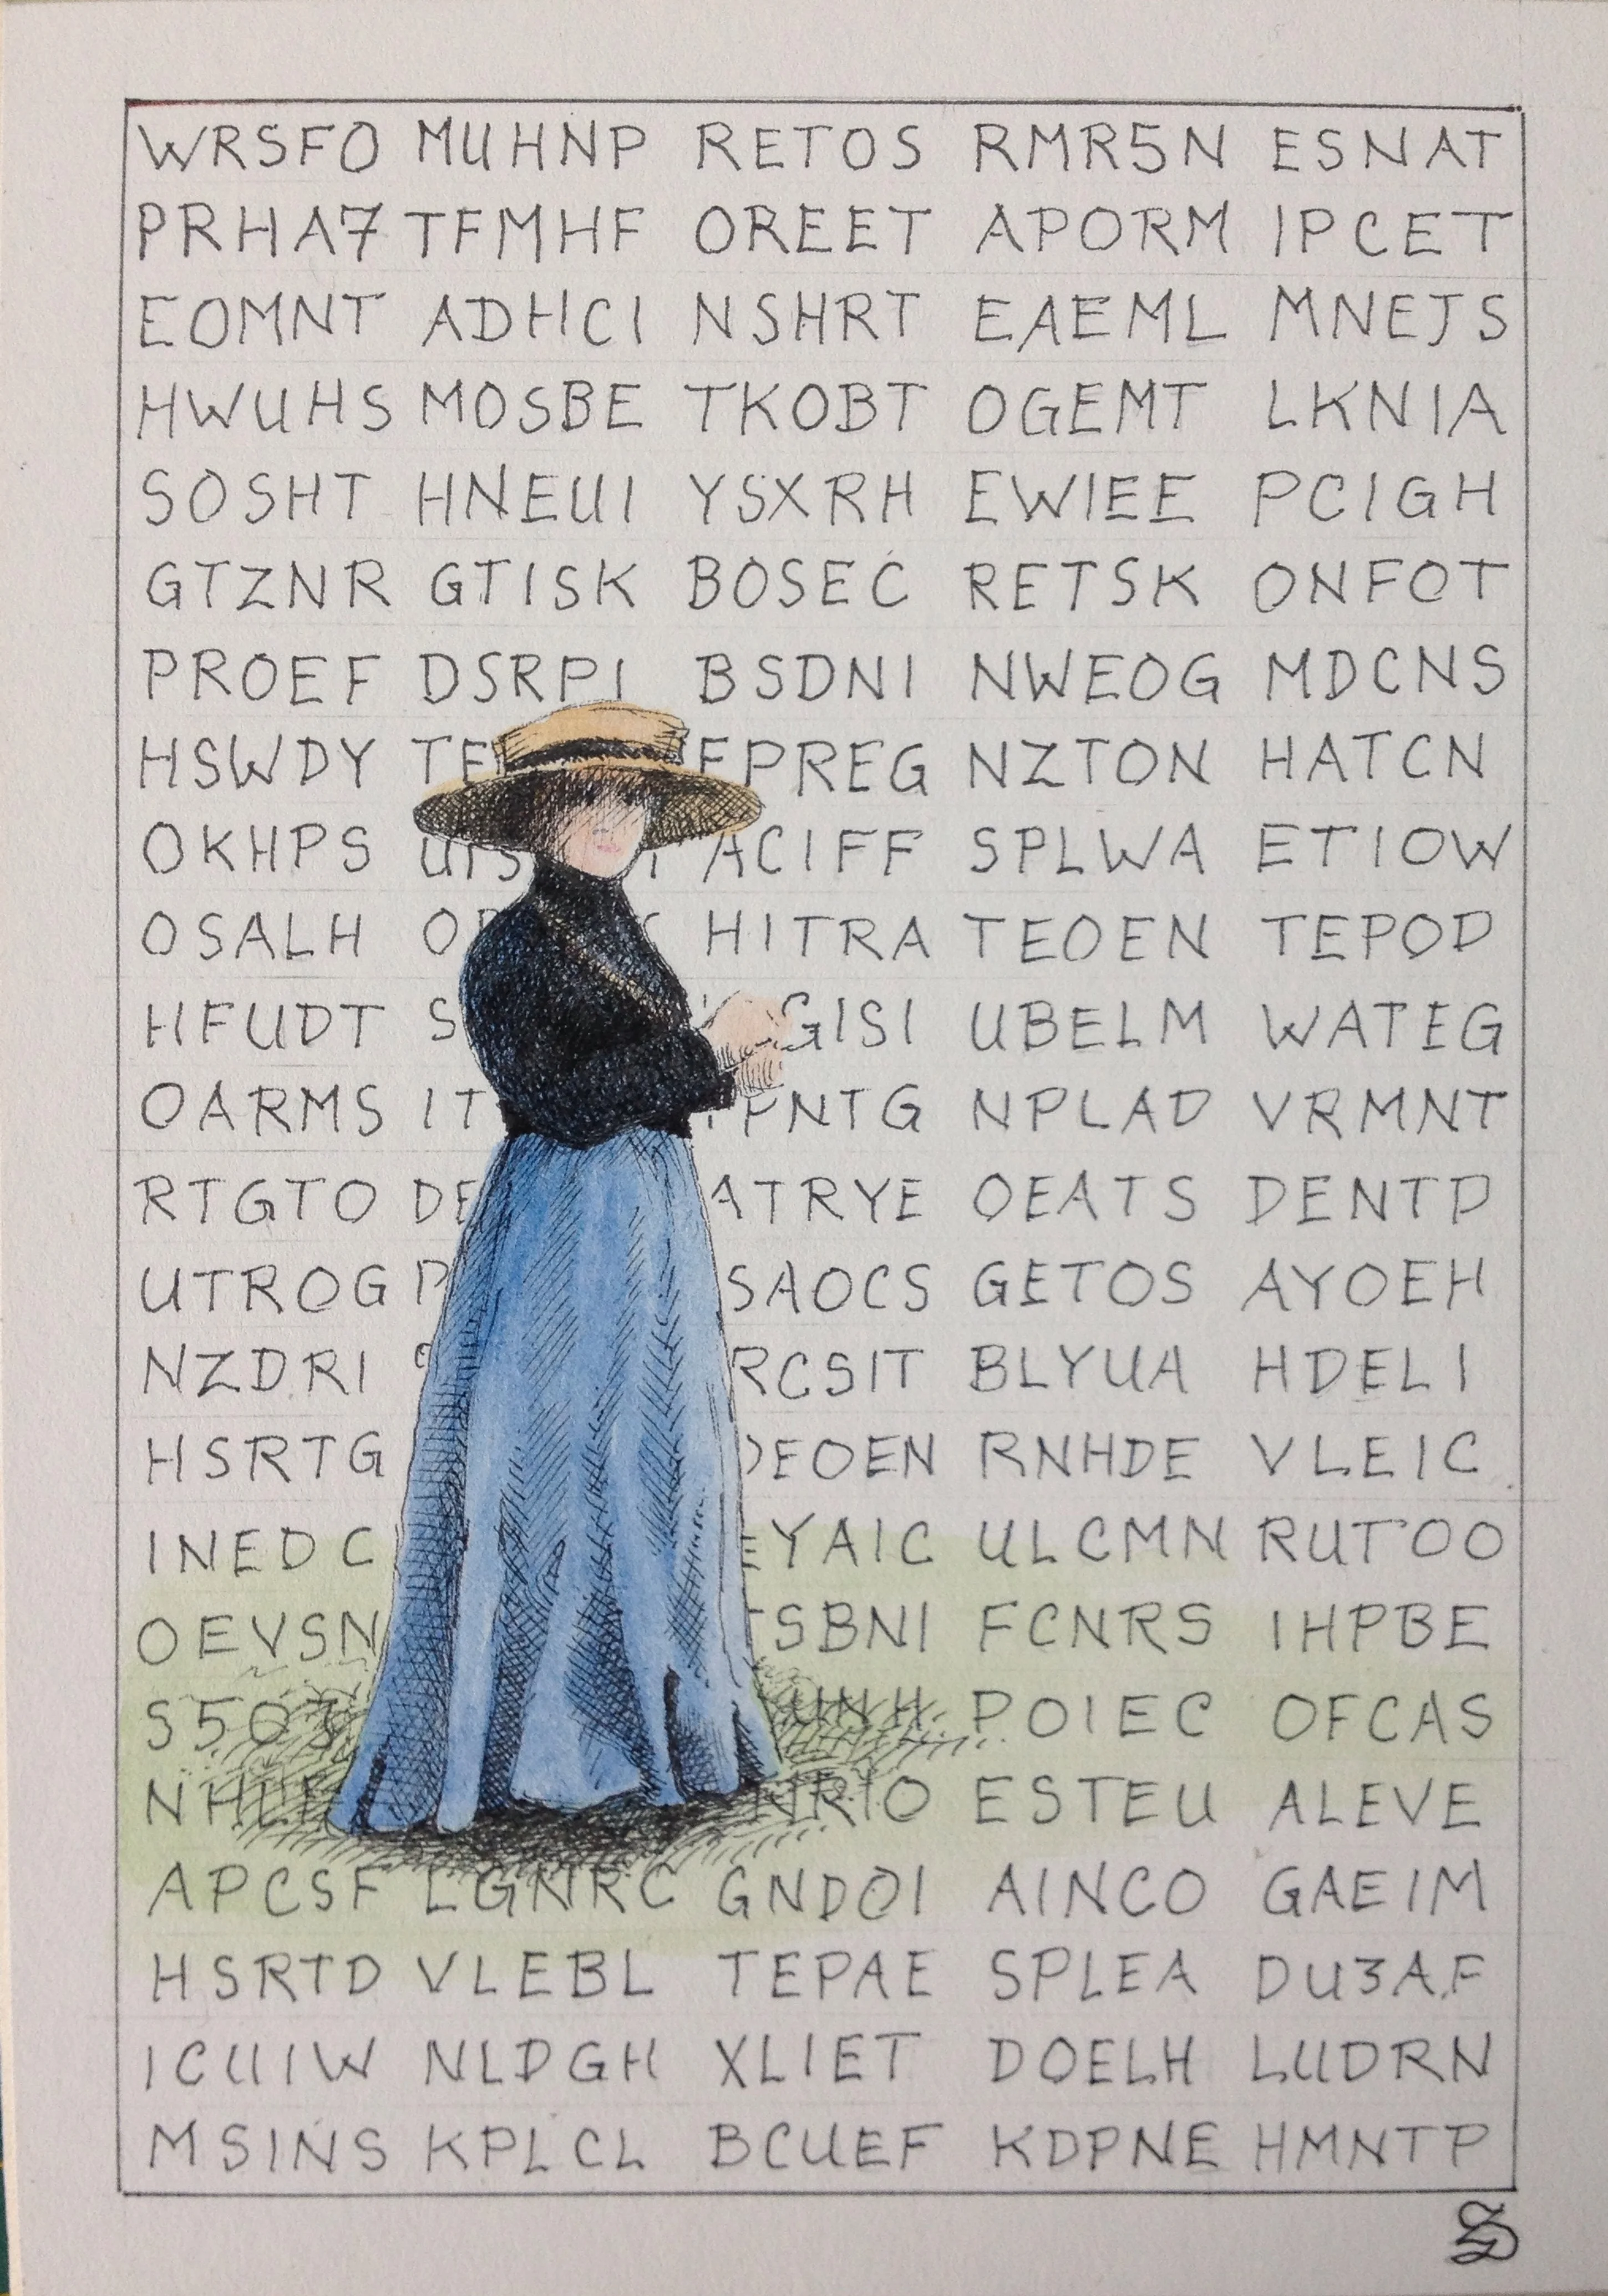 WRSFO MUHNP RETOS RMR5N ESNAT
PRHA7 TFMHF OREET APORM IPCET
EOMNT ADHCI NSHRT EAEML MNEJS
HWUHS MOSBE TKOBT OGEMT LKNIA
SOSHT HNEUI YSXRH EWIEE PCIGH
GTZNR GTISK BOSEC RETSK ONFOT
PROEF DSRPI BSDNI NWEOG MDCNS
HSWDY PREG NZTON HATCN
OKHPS ACIFF SPLWA ETIOW
OSALH HITRA TEOEN TEPOD
HFUDT GISI UBELM WATEG
OARMS IT NTG NPLAD VRMNT
RTGTO DE ATRYE OEATS DENTD
UTROG SAOCS GETOS AYOEH
NZDRI RCSIT BLYUA HDELI
HSRTG EOEN RNHDE VLEIC
INEDC EYAIC ULCMN RUTOO
OEVSN SBNI FCNRS IHPBE
POIEC OFCAS
RIO ESTEU ALEVE
APCSF LGNRC GNDOI AINCO GAEIM
HSRTD VLEBL TEPAE SPLEA DU3AF
ICUIW NLDGH XLIET DOELH LUDRN
MSINS KPLCL BCUEF KDPNE HMNTP